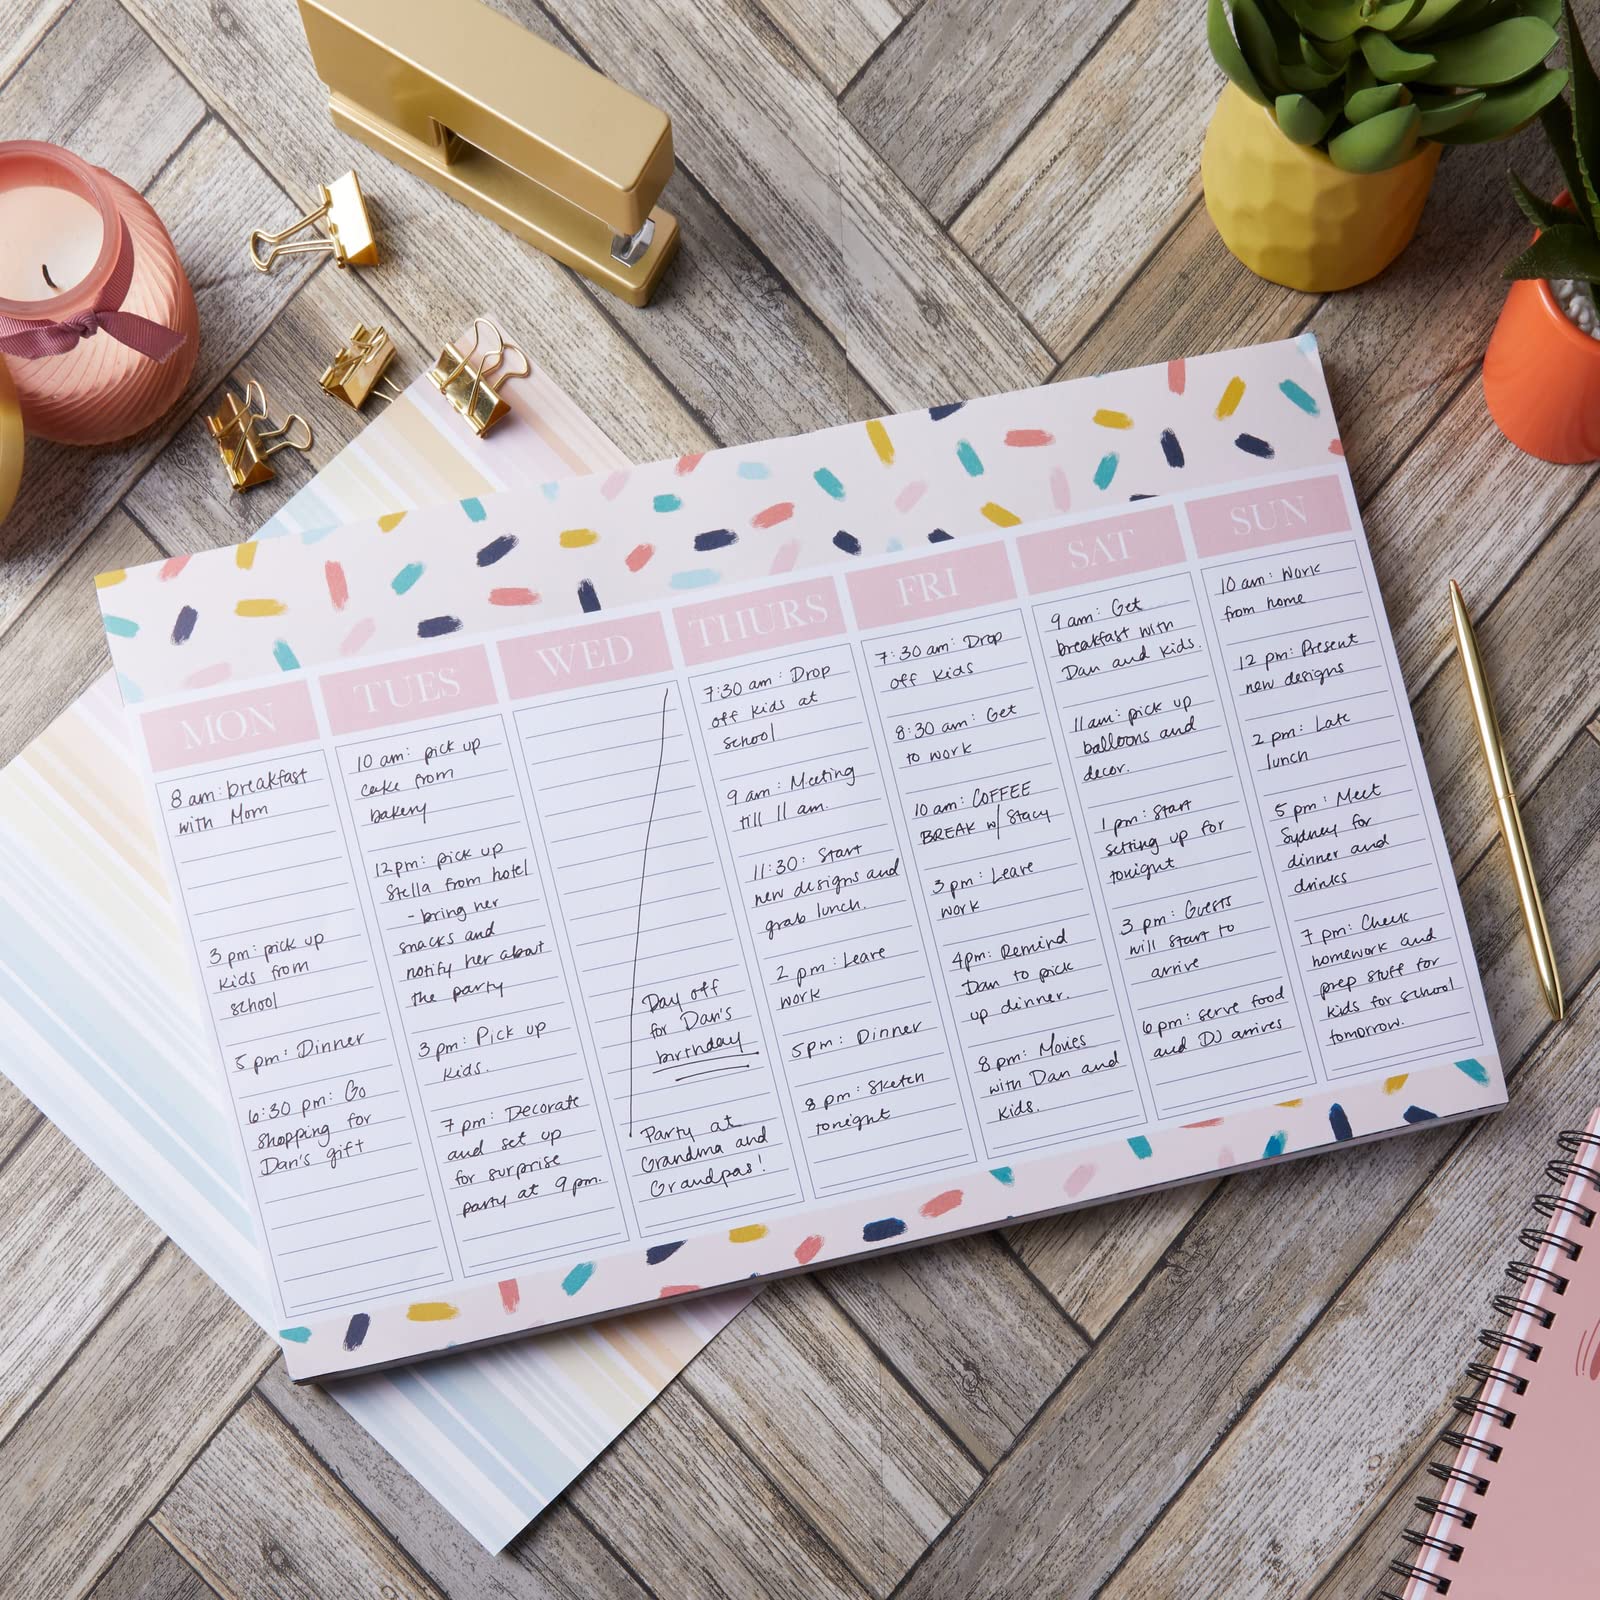 MON
8 am: breakfast
with Mom
3 pm: pick up
kids from
school
5 pm: Dinner
6:30 pm: Go
shopping for
Dan's gift
TUES
10 am: pick up
cake from
bakery
12pm: pick up
Stella from hotel
- bring her
snacks and
notify her about
the party
3 pm: Pick up
kids.
7 pm: Decorate
and set up
for surprise
party at 9 pm.
WED
Day off
for Dan's
birthday
Party at
Grandma and
Grandpas!
THURS
7:30 am: Drop
off kids at
school
9 am: Meeting
till 11 am.
11:30: Start
new designs and
grab lunch.
2 pm: Leave
work
5pm: Dinner
8 pm: Sketch
tonight
FRI
7:30 am: Drop
off kids
8:30 am: Get
to work
10 am: COFFEE
BREAK w/ Stacy
3 pm: Leave
work
4pm: Remind
Dan to pick
up dinner.
8 pm: Movies
with Dan and
kids.
SAT
9 am: Get
breakfast with
Dan and kids.
11 am: pick up
balloons and
decor.
1 pm: Start
setting up for
tonight
3 pm: Guests
will start to
arrive
6 pm: serve food
and DJ arrives
SUN
10 am: Work
from home
12 pm: Present
new designs
2 pm: Late
lunch
5 pm: Meet
Sydney for
dinner and
drinks
7 pm: Check
homework and
prep stuff for
kids for school
tomorrow.